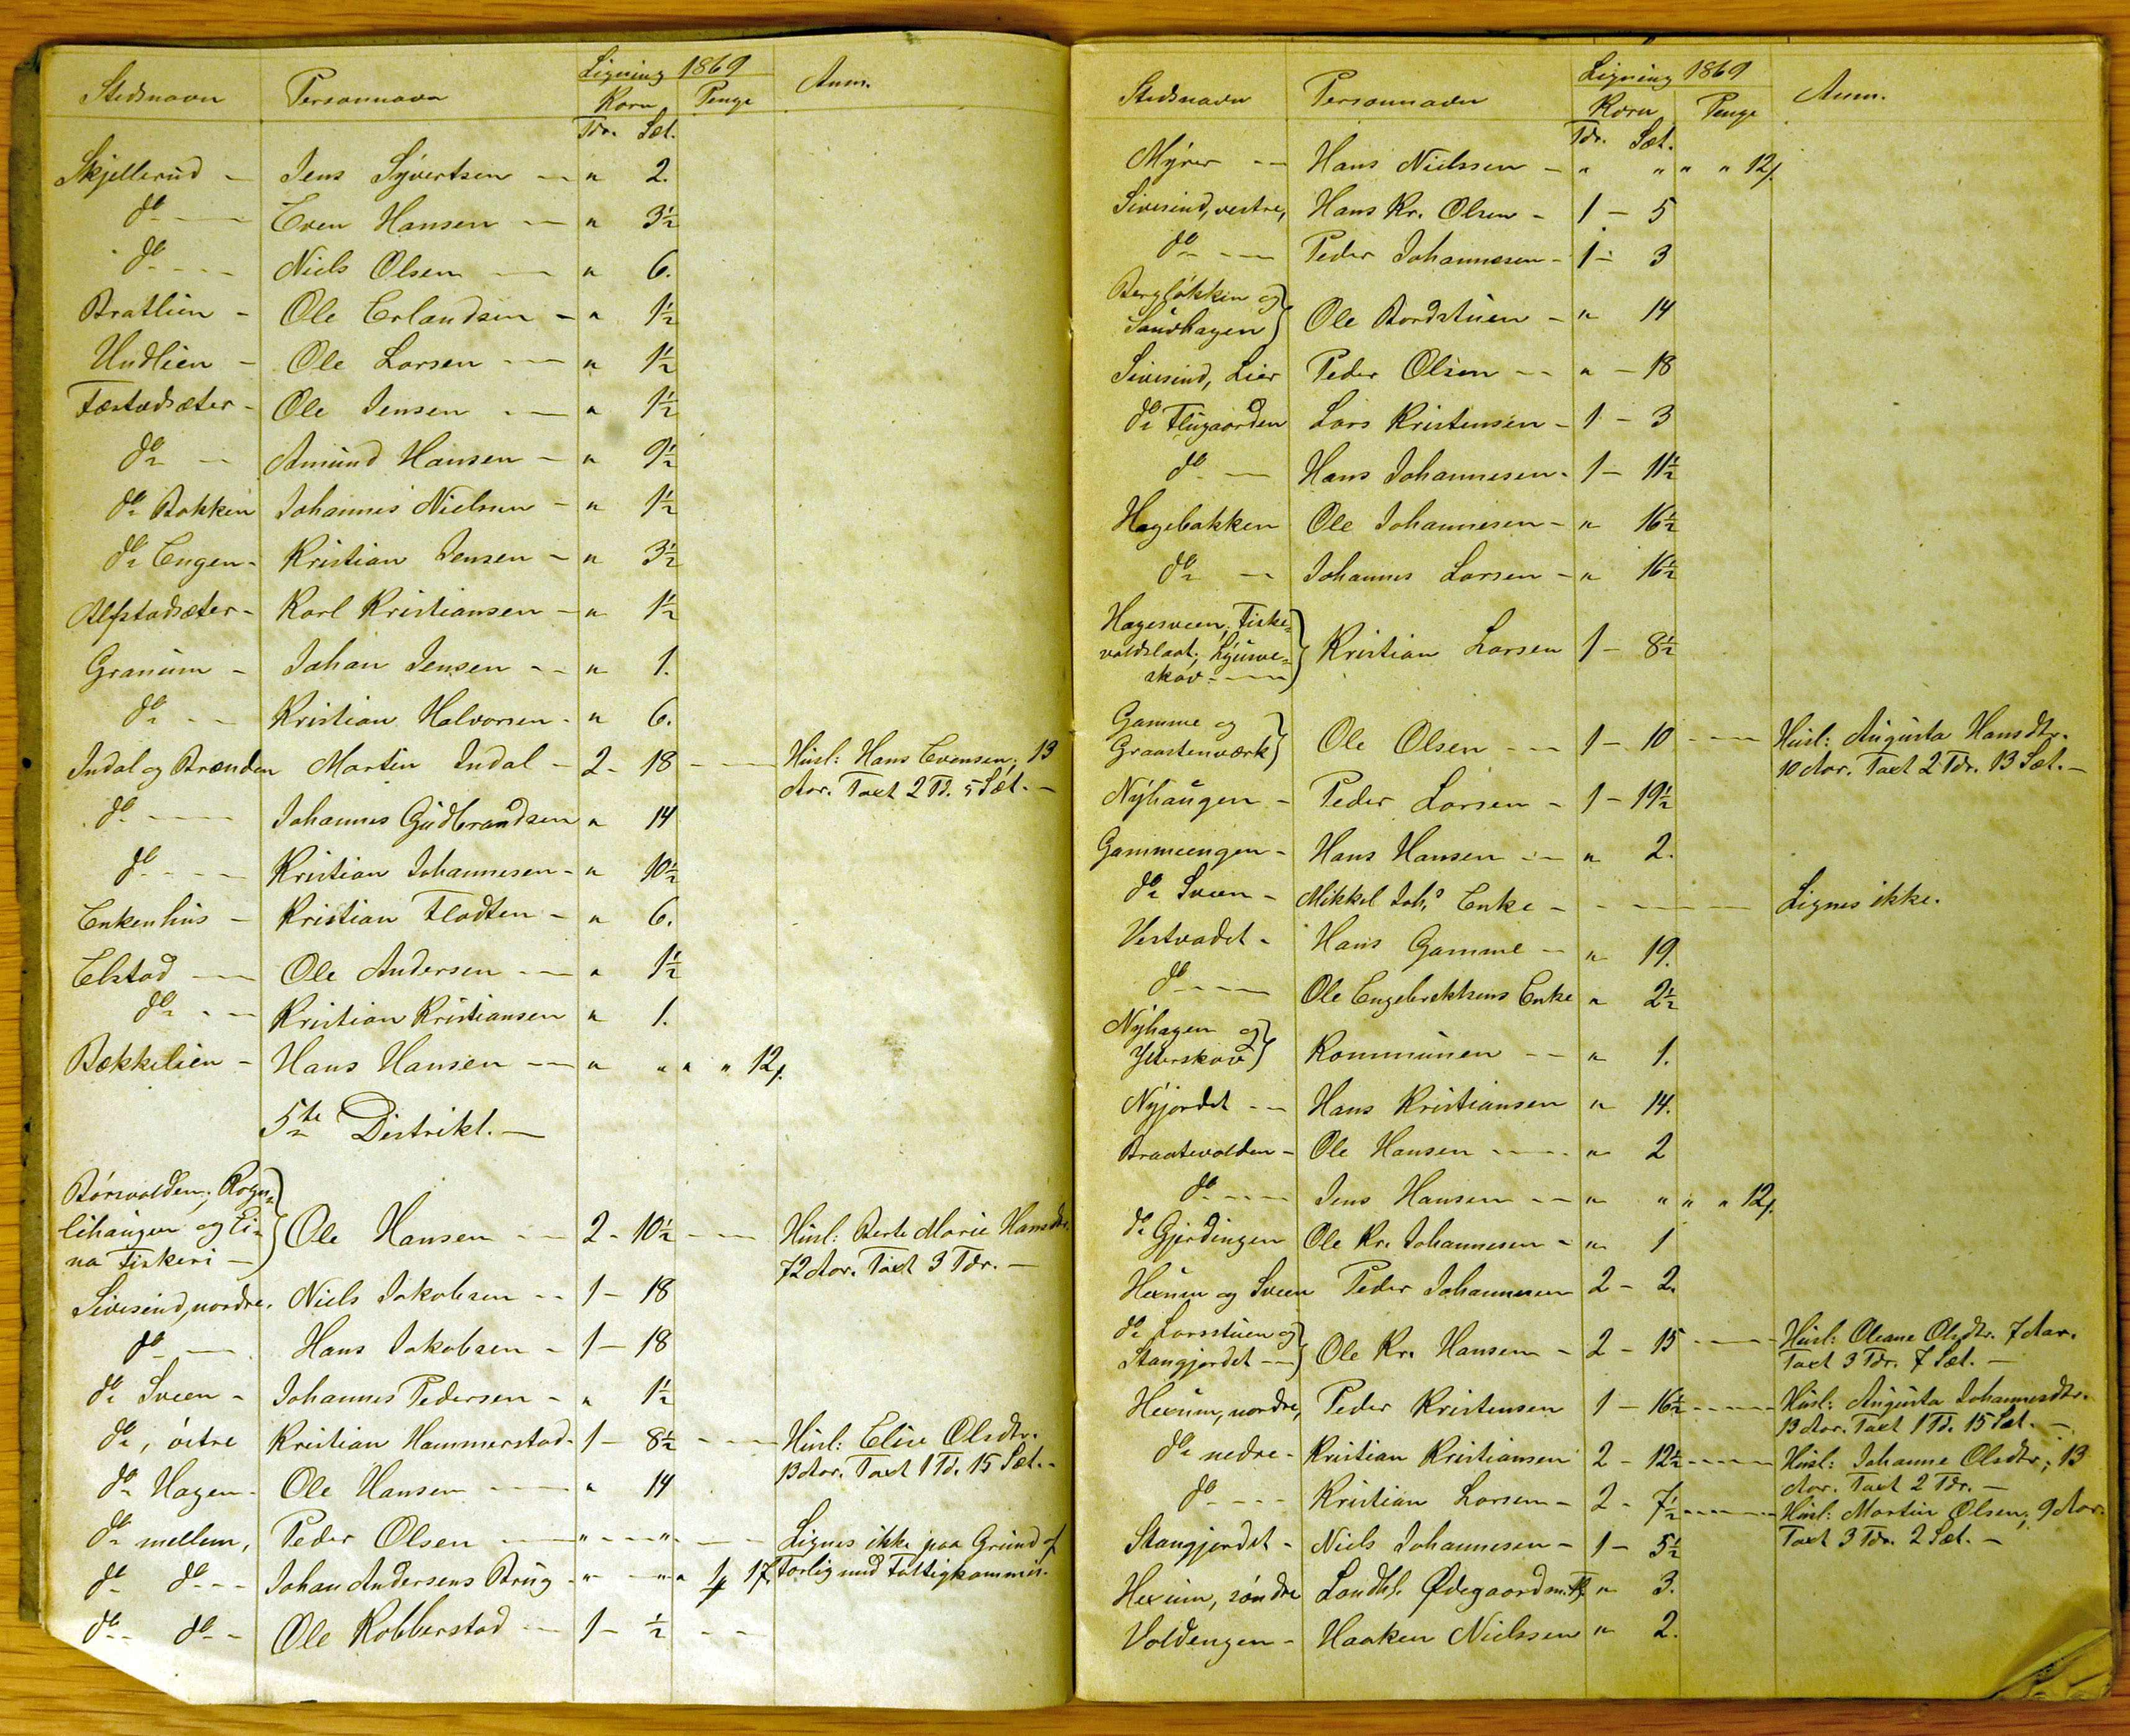 Ligning 1869
Stedsnavn Personnavn Korn Penge Anm.
Tdr. Sæt.
Skjellerud - Jens Syvertsen - " 2.
do - Even Hansen - " 3½
do - Niels Olsen - " 6.
Bratlien - Ole Erlandsen - " 1½
Undlien - Ole Larsen - " 1½
Fæstadsæter - Ole Jensen - " 1½
do - Amund Hansen - " 9½
do Bakken Johannes Nielsen - " 1½
do Engen - Kristian Jensen - " 3½
Alfstadsæter - Karl Kristiansen - " 1½
Granum - Johan Jensen - " 1.
do - Kristian Halvorsen - " 6.
Indal og Brænden Martin Indal - 2 - 18 - Husl: Hans Evensen, 13
Aar. Taxt 2 Td. 5 Sæt. -
do - Johannes Gudbrandsen " 14
do - Kristian Johannesen - " 10½
Enkenhus - Kristian Flodten - " 6.
Elstad - Ole Andersen - " 1½
do - Kristian Kristiansen " 1.
Bækkelien - Hans Hansen - " " " " 12ß.
5te Distrikt. -
Børsvolden, Rogn-
lihaugen og Ei-
na Fiskeri - } Ole Hansen - 2 - 10½ - Husl: Berte Marie Hansdtr.
72 Aar. Taxt 3 Tdr. -
Sivesind, nordre, Niels Jakobsen - 1 - 18
do - Hans Jakobsen - 1 - 18
do Sveen - Johannes Pedersen - " 1½
do, østre Kristian Hammerstad - 1 - 8½ - Husl: Elise Olsdtr.
13 Aar. Taxt 1 Td. 15 Sæt. -
do Hagen - Ole Hansen - " 14
do mellem, Peder Olsen - " - " - Lignes ikke paa Grund af
do do - Johan Andersens Brug - " - " " 1ß 17. Forlig med Fattigkommis.
do - do - Ole Kobberstad - 1 - ½ - -
Ligning 1869
Stedsnavn Personnavn Korn Penge Anm.
Tdr. Sæt.
Myrer - Hans Nielssen - " " " " 12ß.
Sivesind, vestre, Hans Kr. Olsen - 1 - 5
do - Peder Johannesen - 1 - 3
Bergløkken og
Sandhagen } Ole Bordstuen - " 14
Sivesind, Lier Peder Olsen - " - 18
do Flugaarden Lars Kristensen - 1 - 3
do - Hans Johannesen - 1 - 11½
Hagebakken Ole Johannesen - " 16½
do - Johannes Larsen - " 16½
Hagesveen, Fiske-
voldslaat, Lyusve-
skov - } Kristian Larsen 1 - 8½
Gamme og
Graastenværk } Ole Olsen - 1 - 10 - Husl: Augusta Hansdtr.
10 Aar. Taxt 2 Tdr. 13 Sæt. -
Nyhaugen - Peder Larsen - 1 - 19½
Gammeengen - Hans Hansen - " 2.
do Sveen - Mikkel Joh.s Enke - - Lignes ikke.
Vestvadet - Hans Gamme - " 19.
do - Ole Engebrektsens Enke " 2½
Nyhagen og
Ytterskov } Kommunen - " 1.
Nyjordet - Hans Kristiansen " 14.
Braatevolden - Ole Hansen - " 2
do - Jens Hansen - " " " " 12ß.
do Gjerdingen Ole Kr. Johannesen - " 1
Hexum og Sveen Peder Johannesen 2 - 2.
do Larsstuen og
Stangjordet - } Ole Kr. Hansen - 2 - 15 - Husl: Oleane Olsdtr. 7 Aar.
Taxt 3 Tdr. 7 Sæt. -
Hexum, nordre, Peder Kristensen 1 - 16½ - Husl: Augusta Johannesdtr.
13 Aar. Taxt 1 Td. 15 Sæt. -
do nedre - Kristian Kristiansen 2 - 12½ - Husl: Johanne Olsdtr, 13
Aar. Taxt 2 Tdr. -
do - Kristian Larsen - 2 - 7½ - Husl: Martin Olsen, 9 Aar.
Taxt 3 Tdr. 2 Sæt. -
Stangjordet - Niels Johannesen - 1 - 5½
Hexum, søndre Landh. Ødegaard " 3.
Voldengen - Haaken Nielssen " 2.